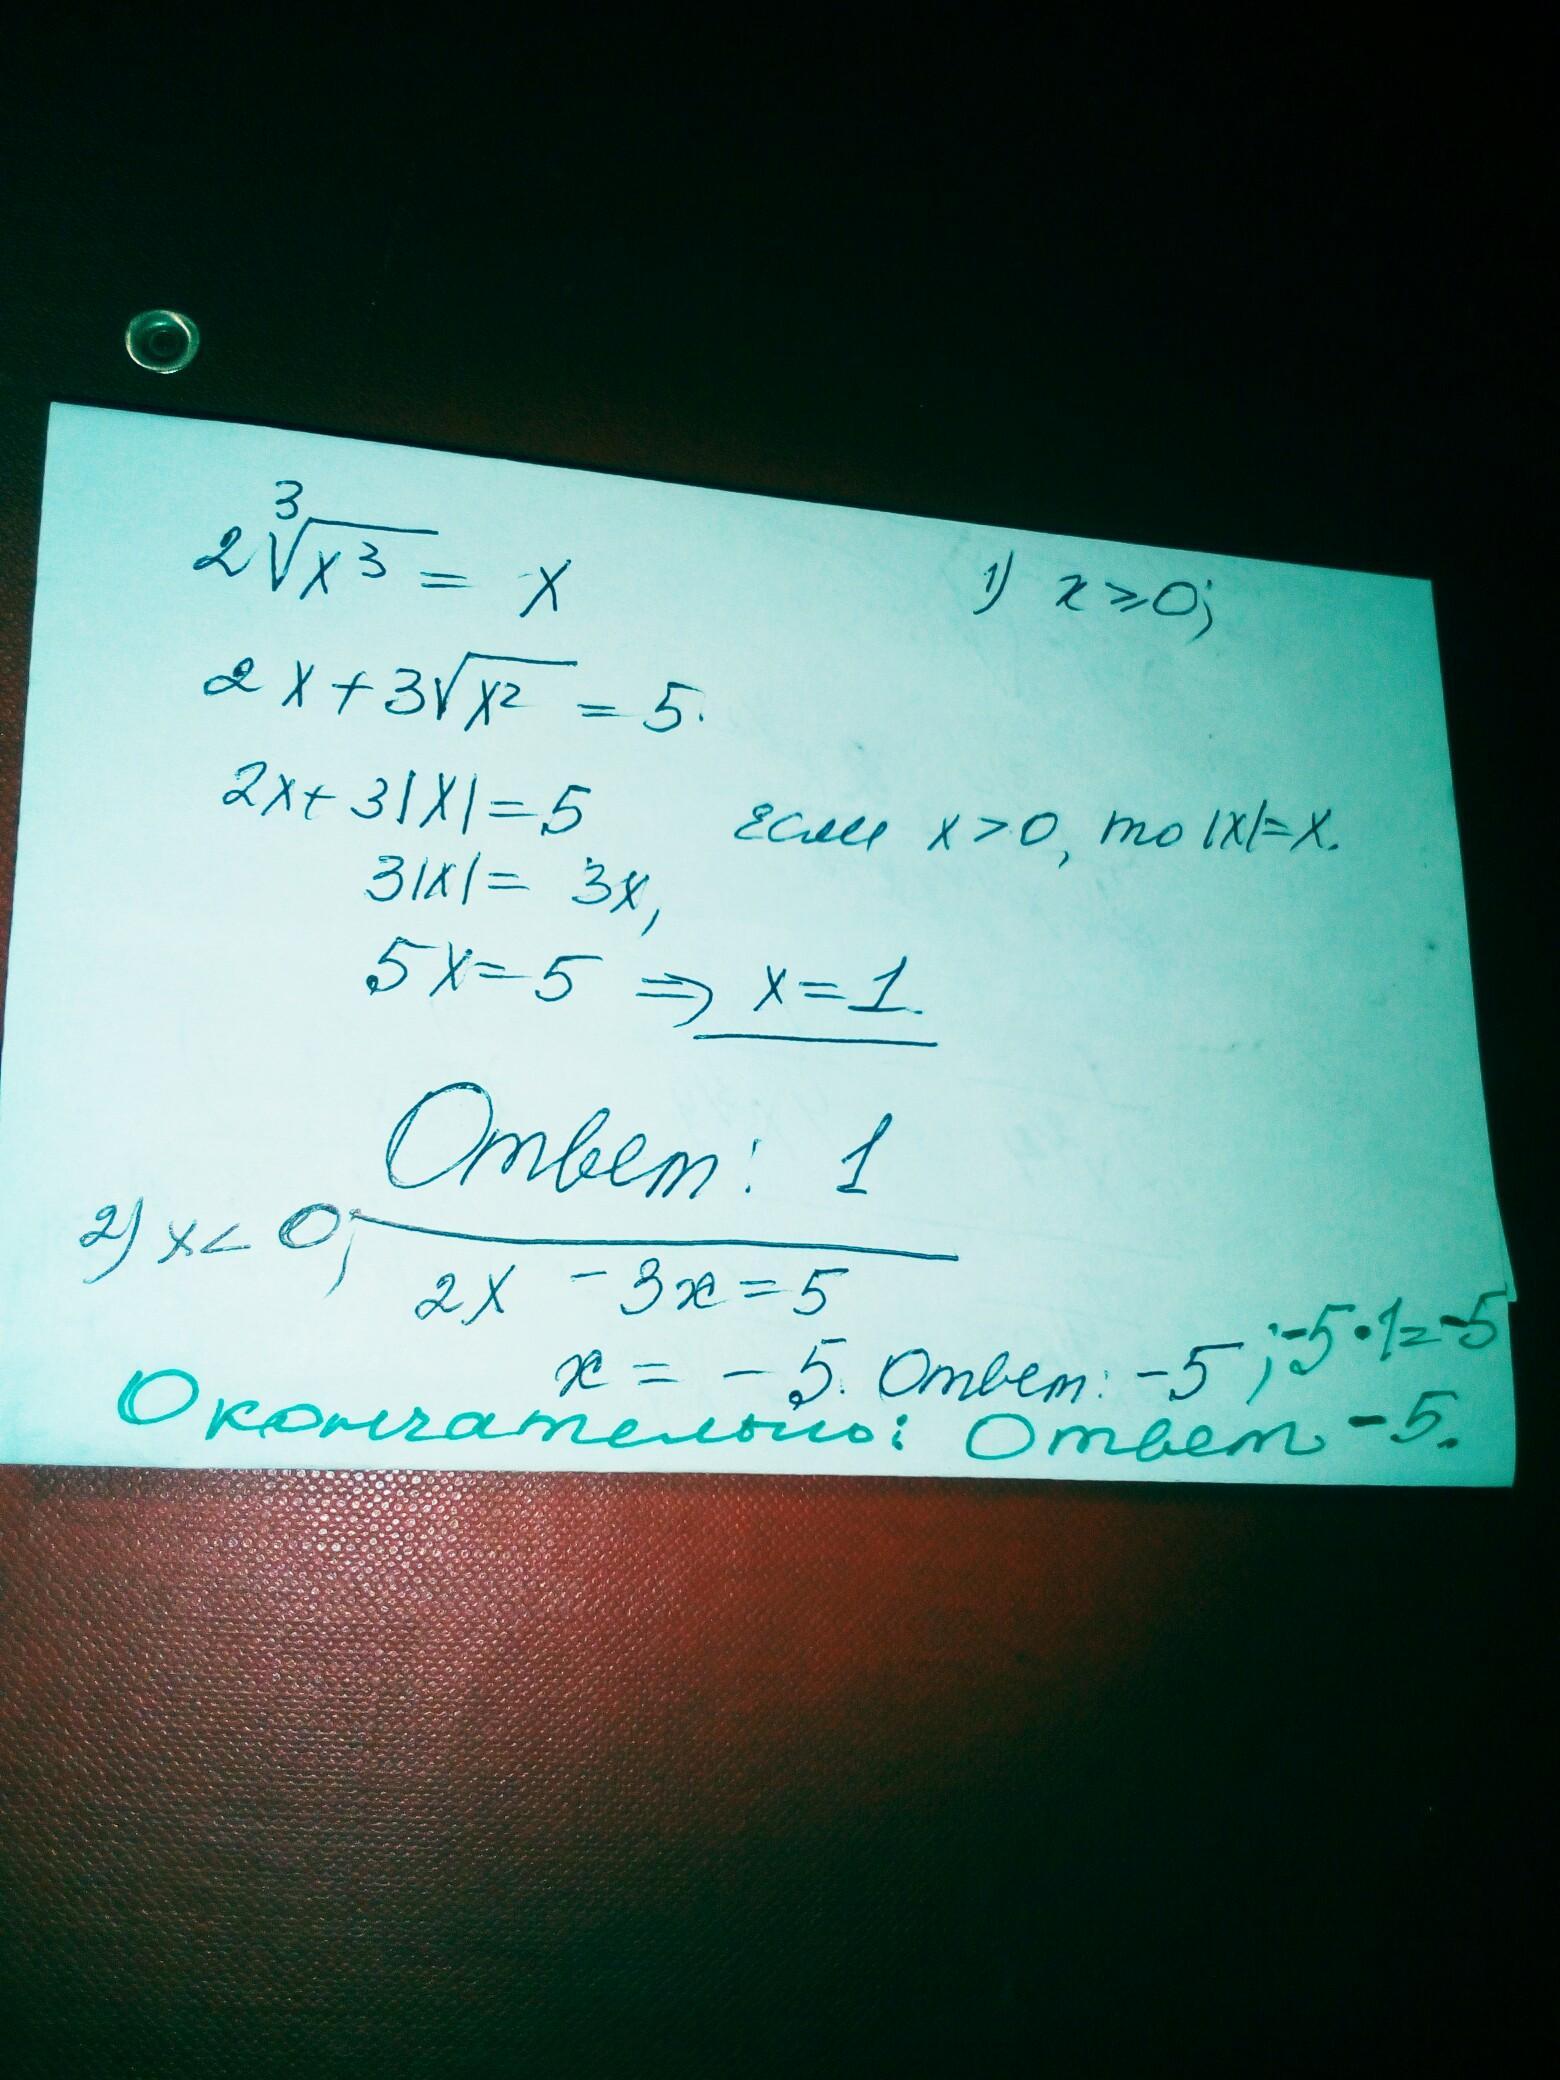 2∛x³ = x 1) x ⩾ 0;
2x + 3√x² = 5.
2x + 3|x| = 5 Если x > 0, то |x| = x.
3|x| = 3x,
5x = 5 ⇒ x = 1.
Ответ: 1
2) x < 0;
2x - 3x = 5
x = - 5. Ответ: -5 ; -5 • 1 = -5
Окончательно: Ответ -5.